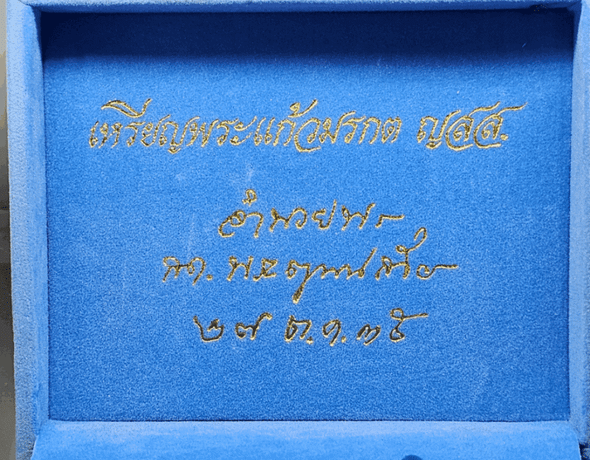 เหรียญพระแก้วมรกต ญสส.
อำนวยพร
พระญาณสังวร
๒๗ ต.ค. ๓๕